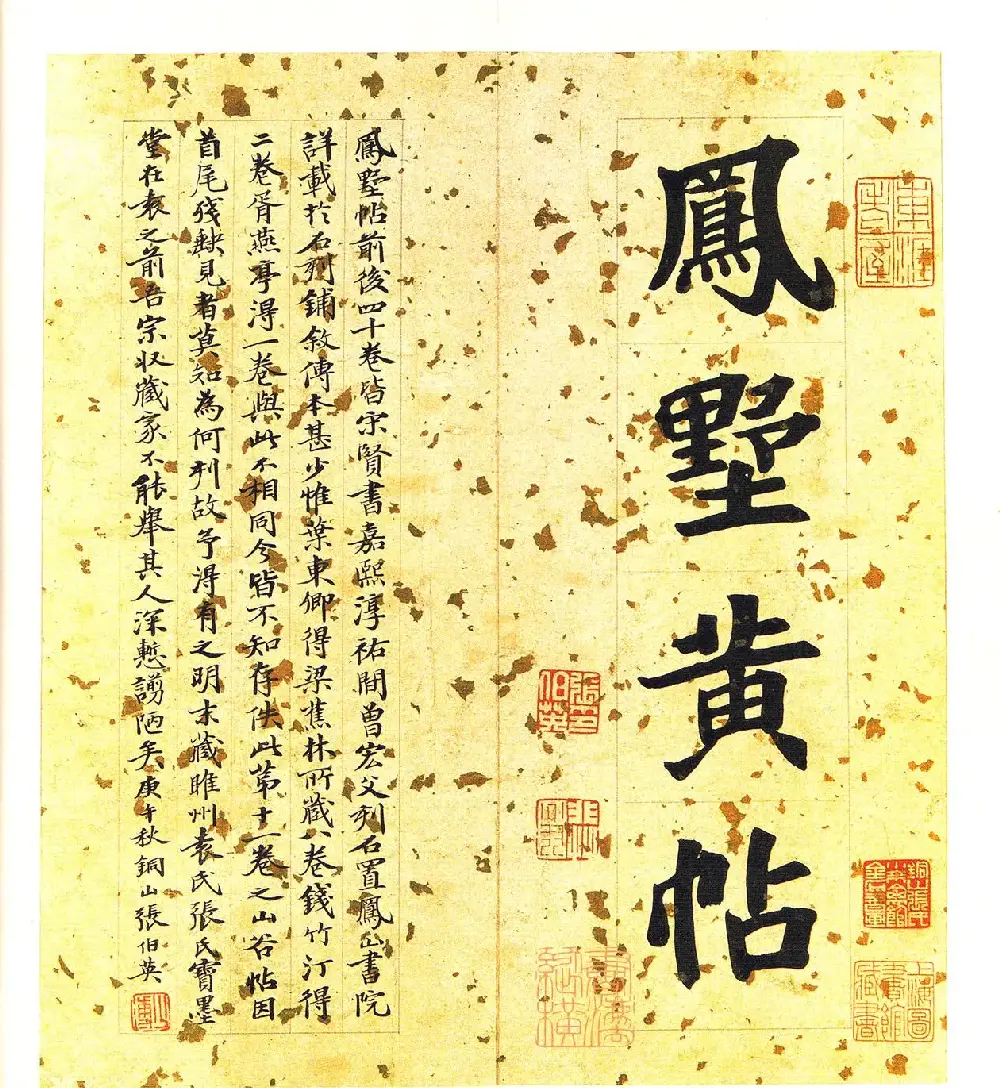 鳳墅黄帖
上海圖書館藏書
鳳墅帖前後四十卷皆宋賢書嘉熙淳祐間曾宏父刋石置鳳山書院
詳載於石刻鋪敘傳本甚少惟葉東卿得梁蕉林所藏八卷錢竹汀得
二卷胥燕亭淂一卷與此不相同今皆不知存佚此第十一卷之山谷帖因
首尾殘缺見者莫知為何刋故予淂有之明末藏睢州袁氏張氏寶墨
堂在袁之前吾宗収藏家不能舉其人深慙謭陋矣庚午秋銅山張伯英